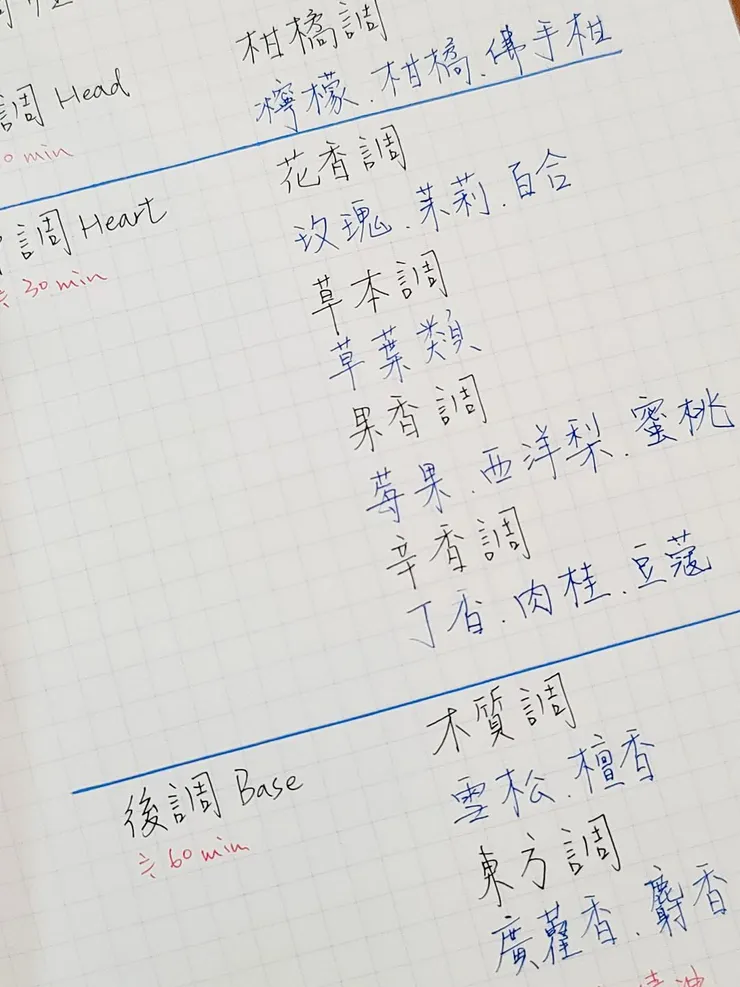 柑橘調
調 Head
檸檬.柑橘.佛手柑
0 min
花香調
調 Heart
玫瑰.茉莉.百合
≒ 30 min
草本調
草葉類
果香調
莓果.西洋梨.蜜桃
辛香調
丁香.肉桂.豆蔻
木質調
後調 Base
雪松.檀香
≒ 60 min
東方調
廣藿香.麝香